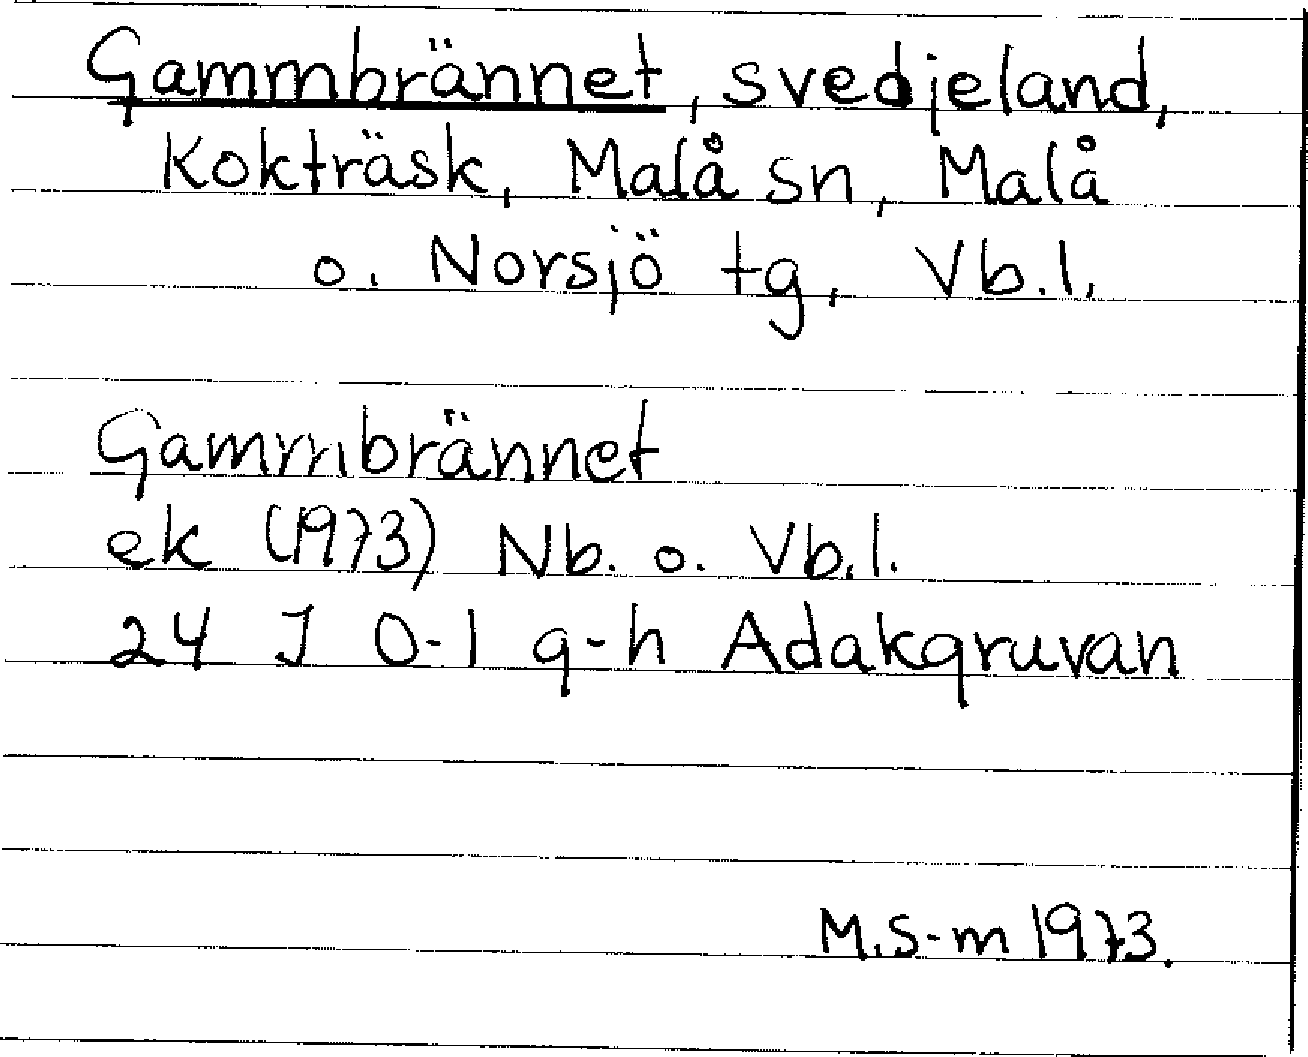 Gammbrännet, svedjeland,
Kokträsk, Malå sn, Malå
o. Norsjö tg, Vb.l.
Gammbrännet
ek (1973) Nb. o. Vb.l.
24 J 0-1 g-h Adakgruvan
M.S-m 1973.